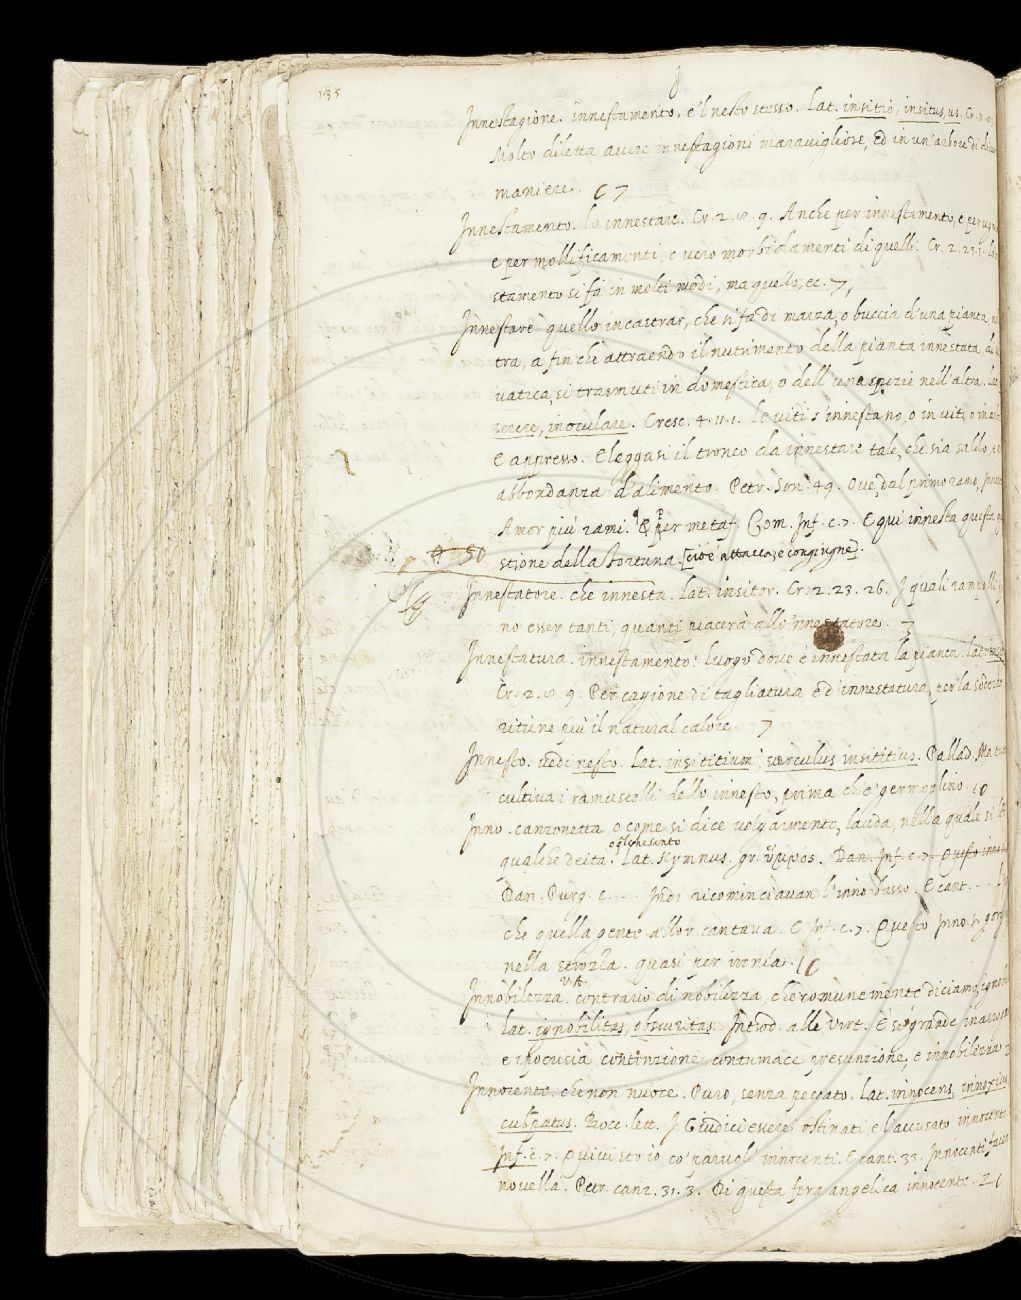 135
Innestagione. innestamento. e'l nesto stesso. Lat. insitio, insitus, us. Cr.
Molto diletta avere innestagioni maravigliose, ed in un'arbore di
maniere. C 7
Innestamento. lo innestare. Cr. 2. 9. Anche per innestamento, e per
e per mollificamenti, e vero morbidamenti di quelli. Cr. 2. 23.
stamento si fa in molti modi, ma quello, ec. 7,
Innestare quello incastrar, che si fa di marza, o buccia d'una pianta,
tra, a fin che attraendo il nutrimento della pianta innestata,
vatica, si trasmuti in domestica, o dell'una spezie nell'altra.
serere, inoculare. Cresc. 4. 11. 1. Le viti s'innestano, o in viti, o in
E appresso. Eleggasi il tronco da innestare tale, che sia saldo,
abbondanza d'alimento. Petr. Son. 49. Ove, dal primo ramo,
Amor più rami. & per metaf. Com. Inf. c. 7. E qui innesta questa
stione della Fortuna. [cioè attacca, e congiugne].
50
Innestatore. che innesta. Lat. insitor. Cr. 2. 23. 26. I quali rampolli
no esser tanti, quanti piacerà allo 'nnestatore. 7
Innestatura. innestamento: luogo dove è innestata la pianta. Lat.
Cr. 2. 9. Per cagione di tagliatura ed'innestatura, per la
ritiene più il natural calore. 7
Innesto. vedi nesto. Lat. insititium, surculus insititius. Pallad.
cultiva i ramuscelli dello innesto, prima che germoglino 10
Inno. canzonetta, o come si dice volgarmente, lauda, nella quale si
o qlche santo
qualche deità. Lat. Hymnus. gr. ὕμνος. Dan. Inf. c. 7. Questo inno
Dan. Purg. c. ... Indi ricominciavan l'inno basso. E cant. ...
che quella gente allor cantava. E Inf. c. 7. Questo Inno si
nella strozza. quasi per ironia. 10
V.A.
Innobilezza. contrario di nobilezza, che comunemente diciamo,
Lat. ignobilitas, obscuritas. Introd. alle Virt. E se grande
e ipocrisia contenzione, contumace presunzione, e innobilezza
Innocente. che non nuoce. Puro, senza peccato. Lat. innocens, innoxius
culpatus. Bocc. lett. I Giudici essere ostinati e l'accusato innocente
Inf. c. 7. Quivi sto io co' parvoli innocenti. E cant. 33. Innocenti
novella. Petr. canz. 31. 3. Di questa fera angelica innocente. 21